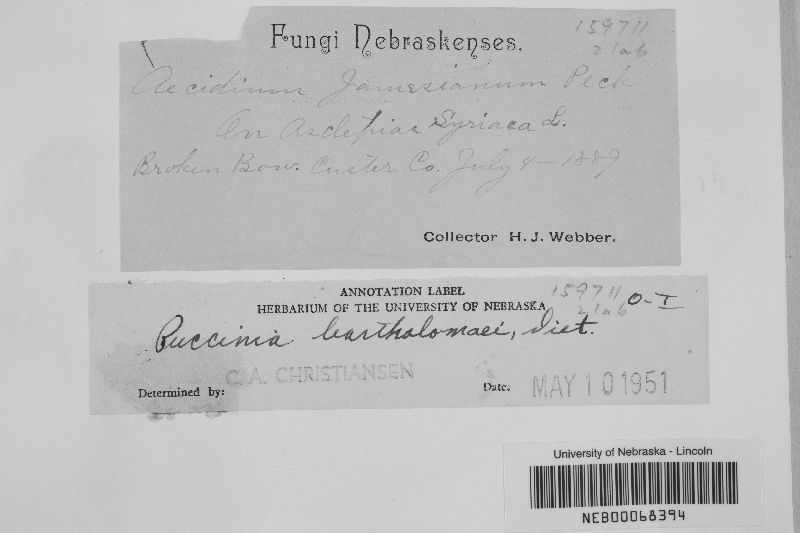 Fungi Nebraskenses.
159711
21ab
Aecidium Jamesianum Peck
On Asclepias Syriaca L.
Broken Bow. Custer Co. July 4-1889
Collector H. J. Webber.
ANNOTATION LABEL
HERBARIUM OF THE UNIVERSITY OF NEBRASKA
159711
21ab
O-I
Puccinia bartholomaei, Diet.
Determined by: C. A. CHRISTIANSEN
Date. MAY 10 1951
University of Nebraska - Lincoln
NEB00068394